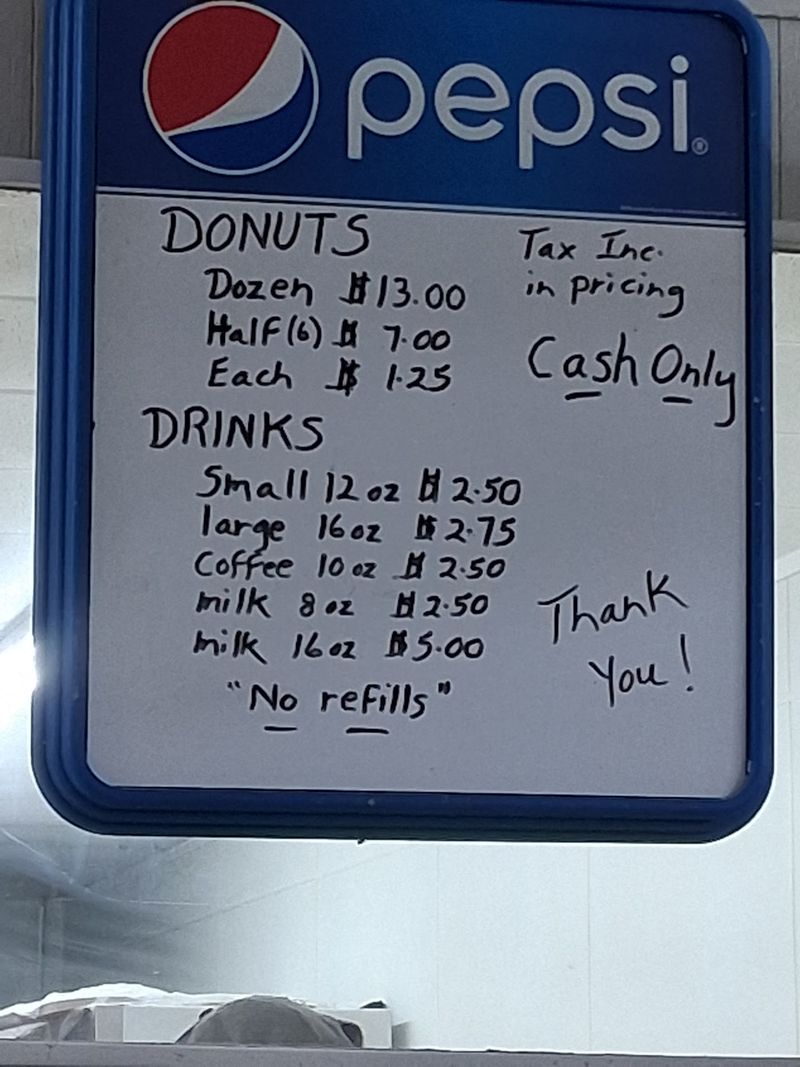 pepsi®
DONUTS
Dozen $13.00
Half (6) $ 7.00
Each $ 1.25
Tax Inc.
in pricing
Cash Only
DRINKS
Small 12 oz $ 2.50
large 16 oz $ 2.75
Coffee 10 oz $ 2.50
milk 8 oz $2.50
milk 16 oz $5.00
"No refills"
Thank
You!